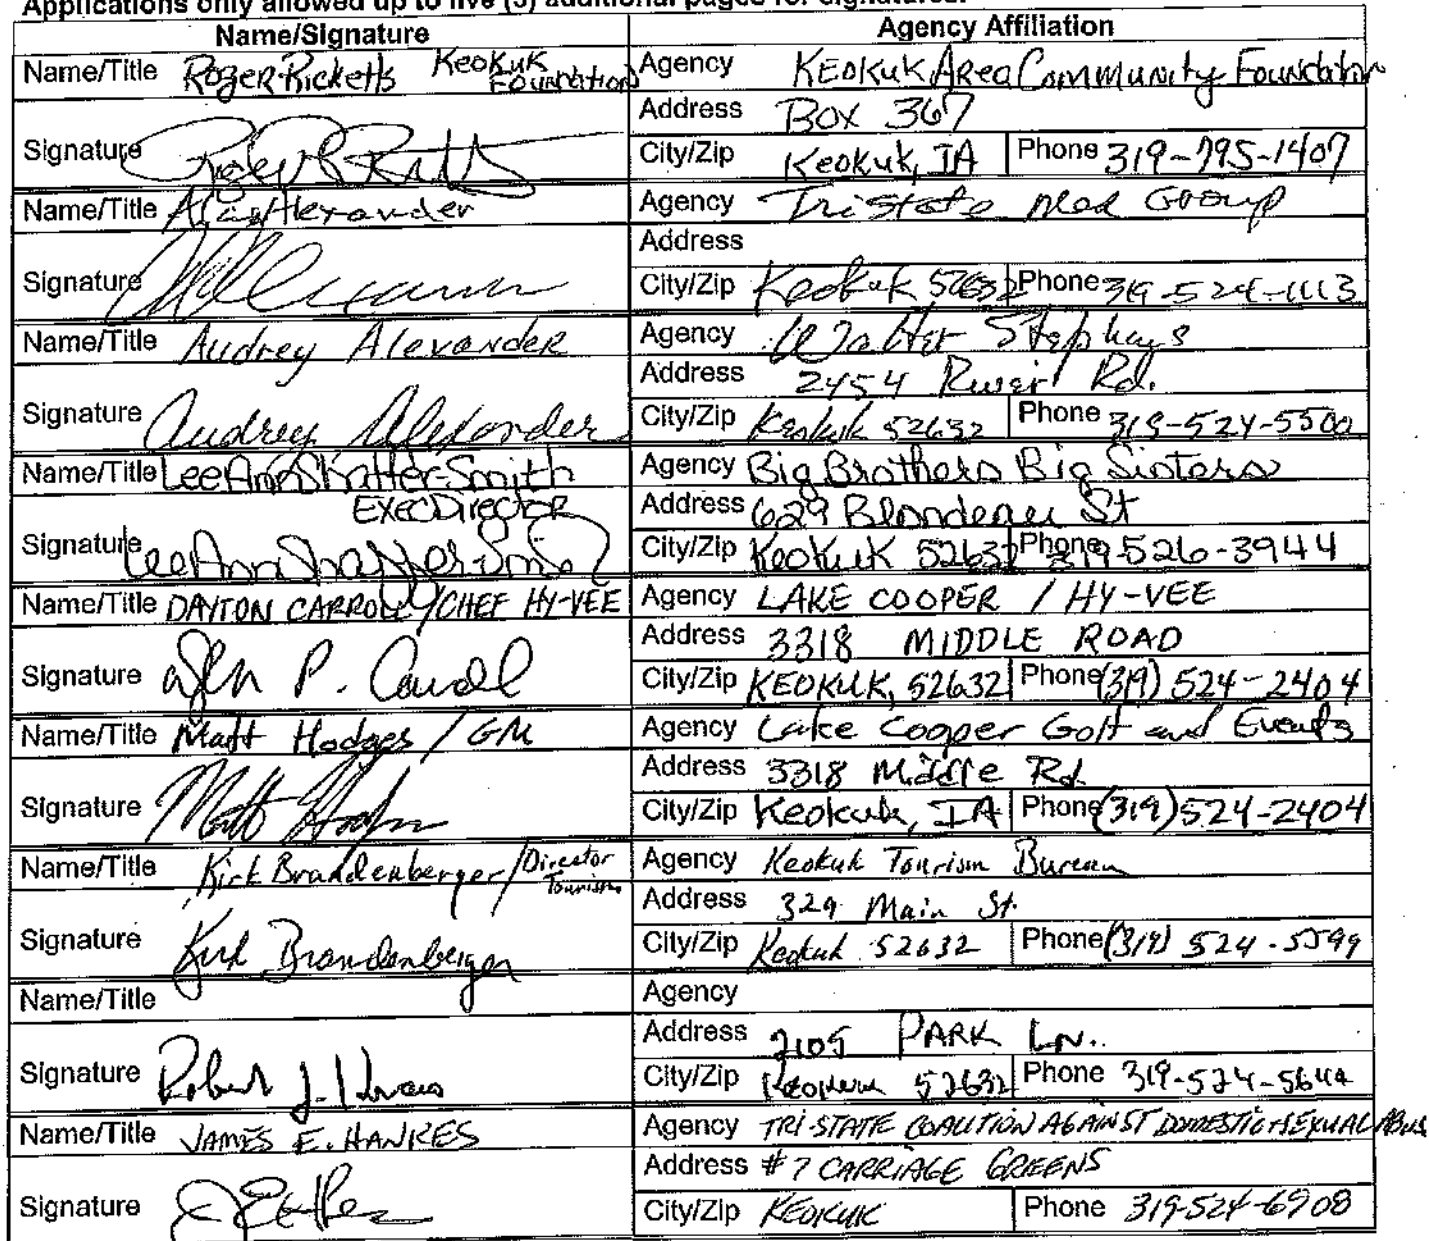 Applications only allowed up to five (5) additional pages for signatures.
Name/Signature Agency Affiliation
Name/Title Roger Ricketts Keokuk Foundation Agency Keokuk Area Community Foundation
Address Box 367
Signature City/Zip Keokuk, IA Phone 319-795-1407
Name/Title Alexander Agency Tristate Med Group
Address
Signature City/Zip Keokuk 52632 Phone 319-524-1113
Name/Title Audrey Alexander Agency Stephens
Address 2454 River Rd.
Signature Audrey Alexander City/Zip Keokuk 52632 Phone 319-524-5500
Name/Title LeeAnn Shaffer-Smith Agency Big Brothers Big Sisters
Exec Director Address 629 Blondeau St
Signature LeeAnn Shaffer-Smith City/Zip Keokuk 52632 Phone 319-526-3944
Name/Title DAYTON CARROLL/CHEF HY-VEE Agency LAKE COOPER / HY-VEE
Address 3318 MIDDLE ROAD
Signature City/Zip KEOKUK, 52632 Phone (319) 524-2404
Name/Title Matt Hodges / GM Agency Lake Cooper Golf and Events
Address 3318 Middle Rd
Signature Matt City/Zip Keokuk, IA Phone (319) 524-2404
Name/Title Kirk Brandenberger/Director Tourism Agency Keokuk Tourism Bureau
Address 329 Main St.
Signature Kirk Brandenberger City/Zip Keokuk 52632 Phone (319) 524-5599
Name/Title Agency
Address 2105 PARK LN.
Signature Robert J. City/Zip Keokuk 52632 Phone 319-524-5644
Name/Title JAMES E. HANKES Agency TRI-STATE COALITION AGAINST DOMESTIC + SEXUAL ABUS
Address #7 CARRIAGE GREENS
Signature City/Zip KEOKUK Phone 319-524-6908